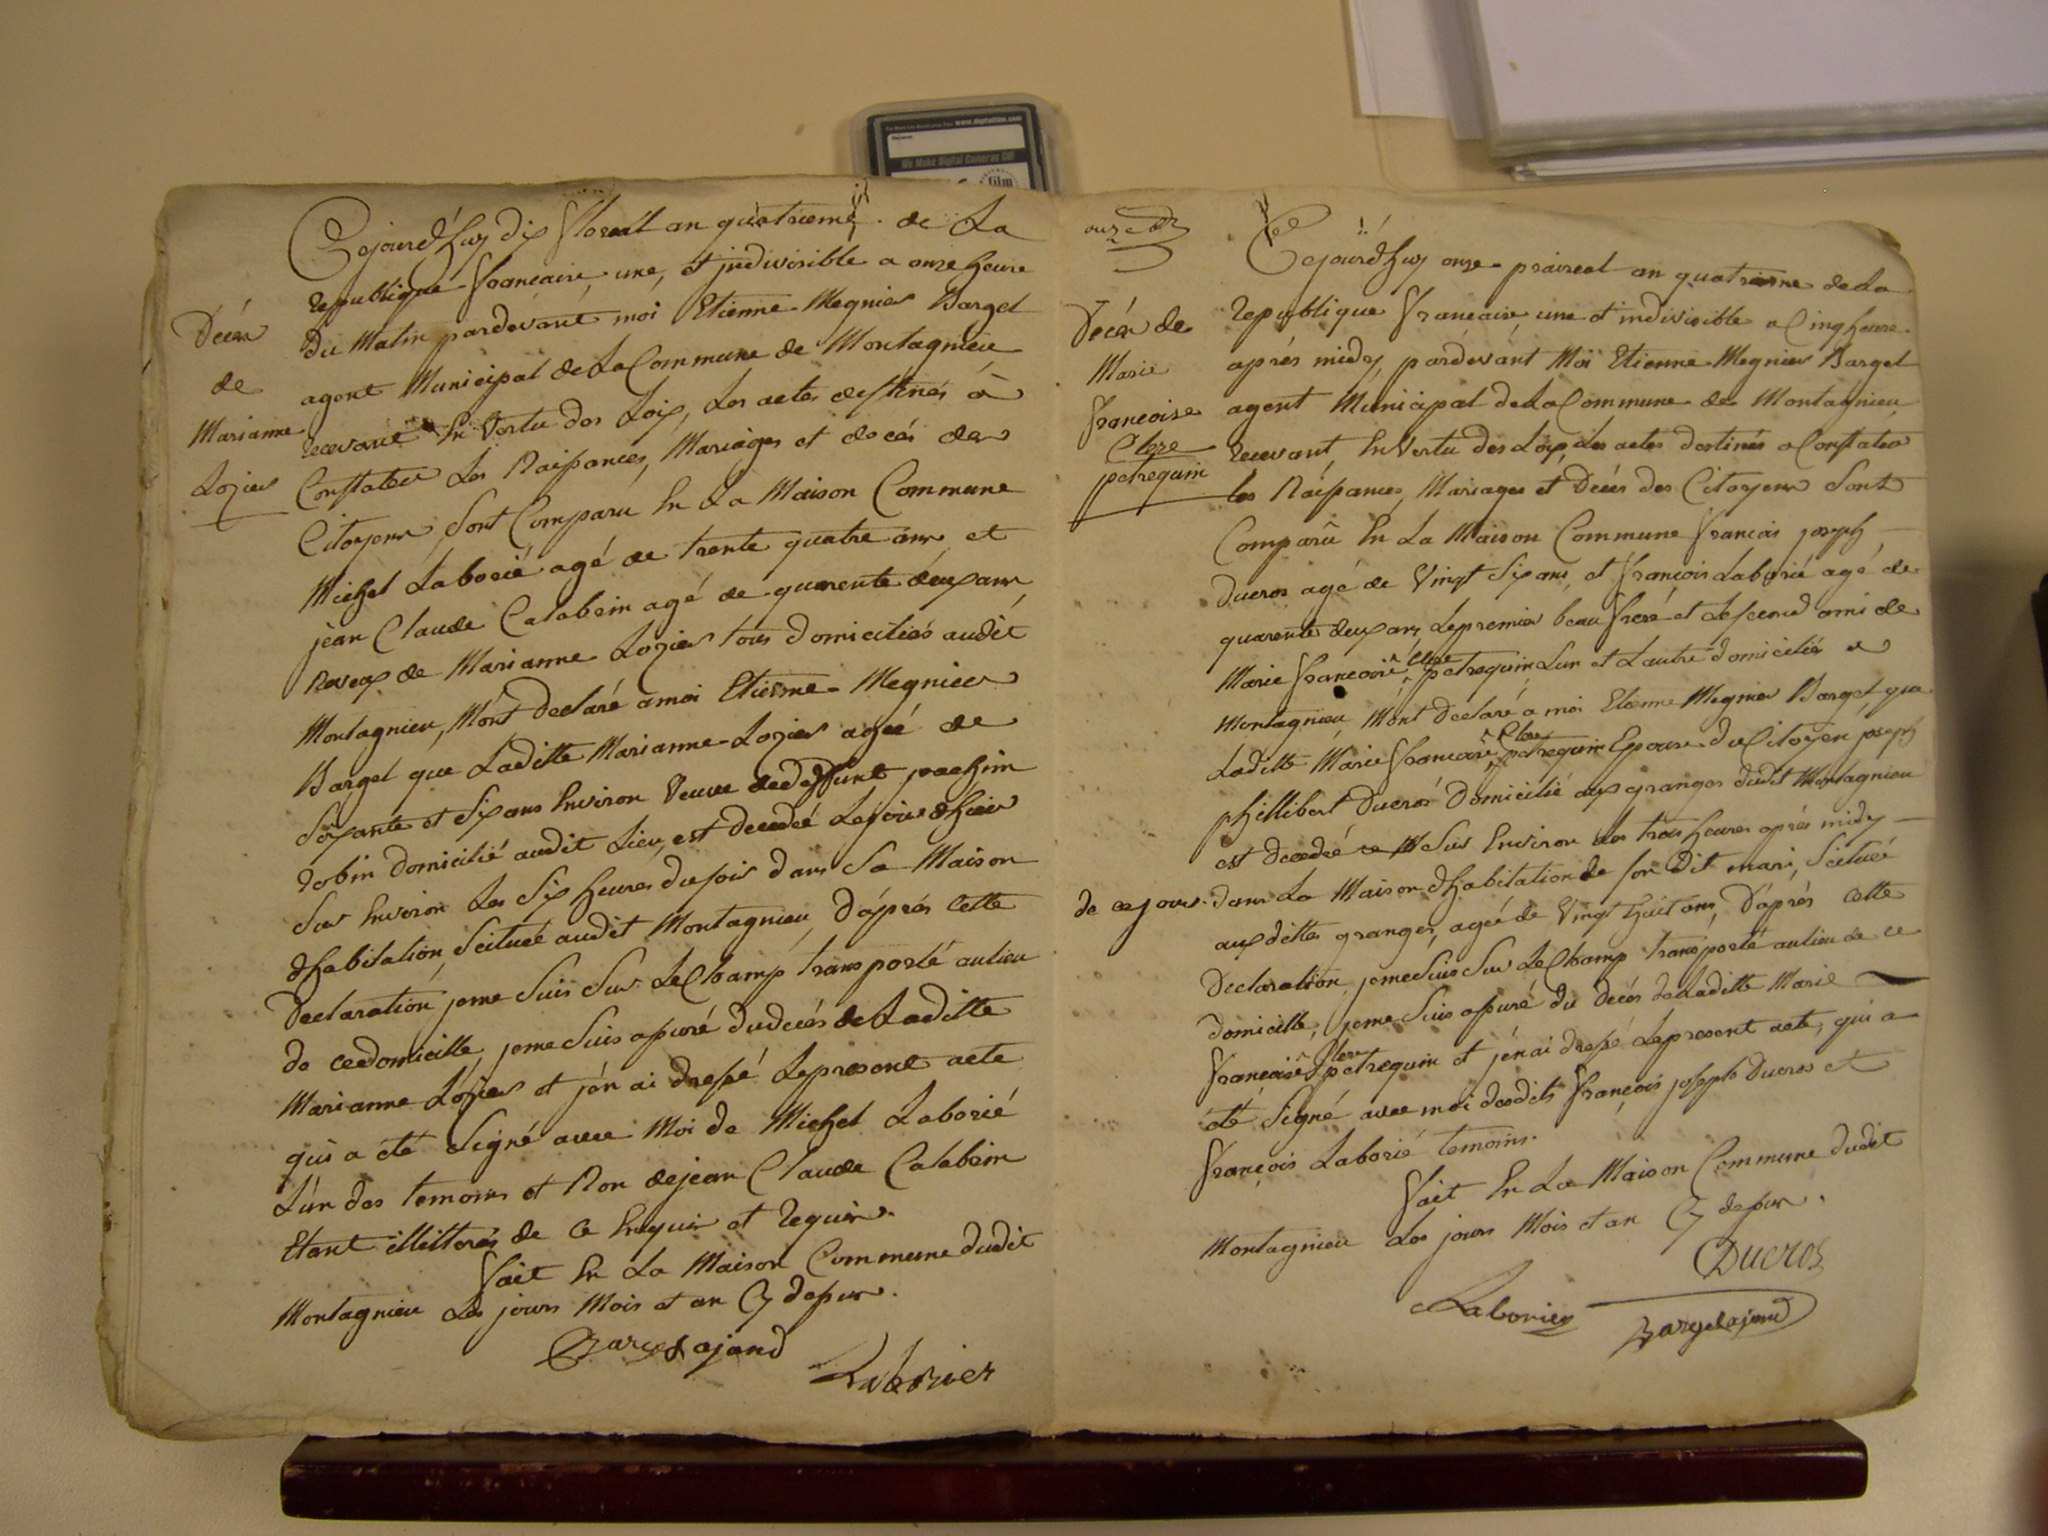 www.digitalfilm.com
We Make Digital Cameras GO!
film
Décès
de
Marianne
Lozier
Cejourd'huy dix floreal an quatrieme de La
republique francaise, une, et jndivisible a onze heure
du Matin pardevant moi Etienne Megnier Barget
agent Municipal de La Commune de Montagnieu
recevant En Vertu des Loix, Les actes destinés à
Constater Les Naissances, Mariages et décés des
Citoyens, Sont Comparu En La Maison Commune
Michel Laborié agé de trente quatre ans et
jean Claude Calabein agé de quarente deux ans
Neveux de Marianne Lozier tous domiciliés audit
Montagnieu, M'ont declaré a moi Etienne Megnier
Barget que Laditte Marianne Lozier ageé de
Soixante et Six ans Environ Veuve de deffunt joachim
robin domicilié audit Lieu, est decedeé Le jour d'hier
Sur Environ Les Six heures du soir dans Sa Maison
d'habitation Scitueé audit Montagnieu, D'aprés Cette
Declaration, jeme Suis Sur Le Champ transporté aulieu
de ce domicille, jeme Suis assuré du décés de Laditte
Marianne Lozier et j'en ai dressé Lepresent acte
qui a été Signé avec Moi de Michel Laborié
L'un des temoins et Non de jean Claude Calabein
Etant illitterés de Ce Enquis et Requis.
fait En La Maison Commune dudit
Montagnieu Les jours Mois et an Cy dessus.
Barget ajand
Laborier
Décès de
Marie
francoise
Clere
petrequin
Cejourd'huy onze praireal an quatrieme de La
republique francaise une et indivisible a Cinq heure
aprés midy, pardevant Moi Etienne Megnier Barget
agent Municipal de La Commune de Montagnieu
recevant, En Vertu des Loix, Les actes destinés a Constater
les Naissances, Mariages et Décés des Citoyens Sont
Comparu En La Maison Commune francois joseph
Ducros agé de Vingt Six ans, et françois Laborié agé de
quarente deux ans, Le premier beau frere et Le second ami de
Marie francoise Clere petrequin, L'un et L'autre domiciliés a
Montagnieu, M'ont declaré a moi Etienne Megnier Barget, que
Laditte Marie francoise Clere petrequin Epouse du Citoyen joseph
phillibert Ducros Domicilié aux granges dudit Montagnieu
est decedeé Sur Environ les trois heures aprés midy
de ce jour. dans La Maison d'habitation de son dit mari, Scitueé
aux dittes granges, ageé de Vingt huit ans, D'aprés cette
Declaration, jeme Suis Sur Le Champ transporté aulieu de ce
domicille, jeme Suis assuré du decés de Laditte Marie
francoise Clere petrequin et j'en ai dressé Lepresent acte, qui a
été Signé avec moi desdits françois joseph Ducros et
françois Laborié temoins.
fait En La Maison Commune dudit
Montagnieu Les jours Mois et an Cy dessus.
Ducros
Laborier
Barget ajand